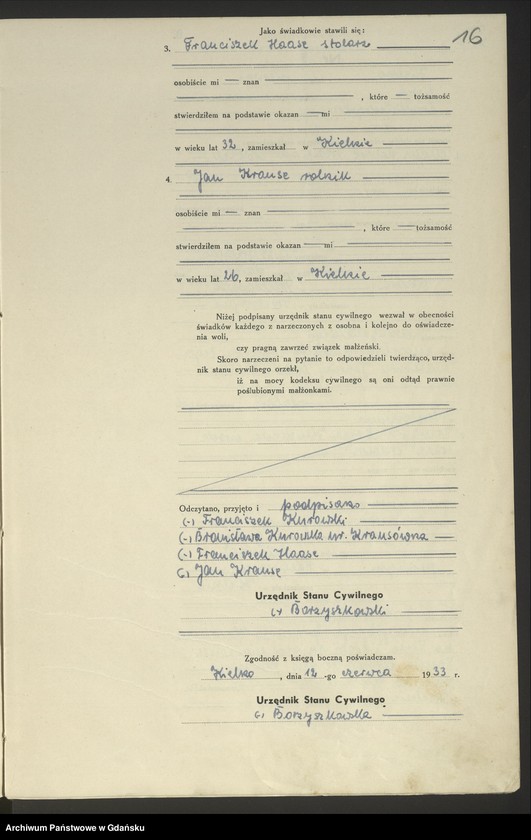 16
Jako świadkowie stawili się:
3. Franciszek Haase stolarz
osobiście mi — znan
, które — tożsamość
stwierdziłem na podstawie okazan — mi
w wieku lat 32, zamieszkał w Kielnie
4. Jan Krause rolnik
osobiście mi — znan
, które — tożsamość
stwierdziłem na podstawie okazan — mi
w wieku lat 26, zamieszkał w Kielnie
Niżej podpisany urzędnik stanu cywilnego wezwał w obecności
świadków każdego z narzeczonych z osobna i kolejno do oświadcze-
nia woli,
czy pragną zawrzeć związek małżeński.
Skoro narzeczeni na pytanie to odpowiedzieli twierdząco, urzęd-
nik stanu cywilnego orzekł,
iż na mocy kodeksu cywilnego są oni odtąd prawnie
poślubionymi małżonkami.
Odczytano, przyjęto i podpisano
(-) Franciszek Kurowski
(-) Bronisława Kurowska ur. Krausówna
(-) Franciszek Haase
(-) Jan Krause
Urzędnik Stanu Cywilnego
(-) Borzyszkowski
Zgodność z księgą boczną poświadczam.
Kielno, dnia 12 -go czerwca 1933 r.
Urzędnik Stanu Cywilnego
(-) Borzyszkowska
Archiwum Państwowe w Gdańsku